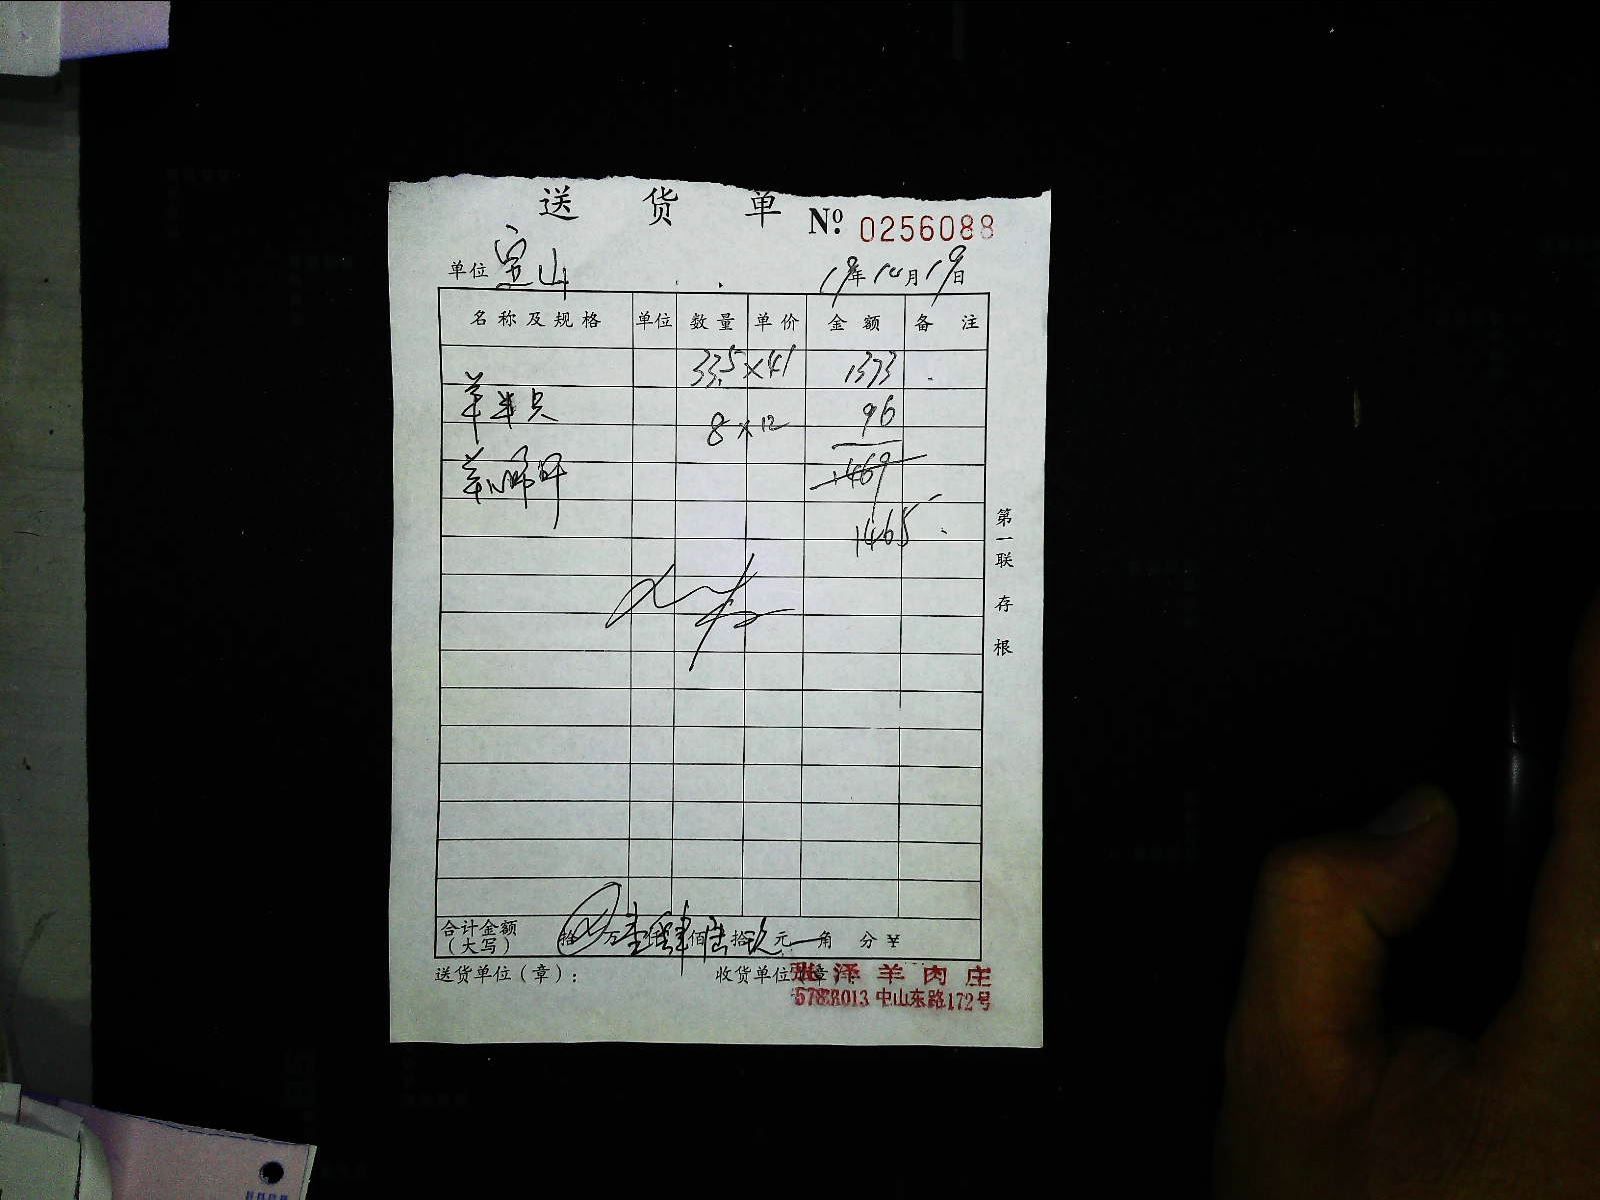 送货单 No. 0256088
单位 宝山 19年10月19日
名称及规格 单位 数量 单价 金额 备注
33.5 × 41 1373
羊半只 8 × 12 96
羊 1469
1465
第一联 存根
合计金额（大写） 拾 万 壹 仟 肆 佰 陆 拾 玖 元 角 分 ¥
送货单位（章）： 收货单位（章）
张泽羊肉庄
中山东路172号